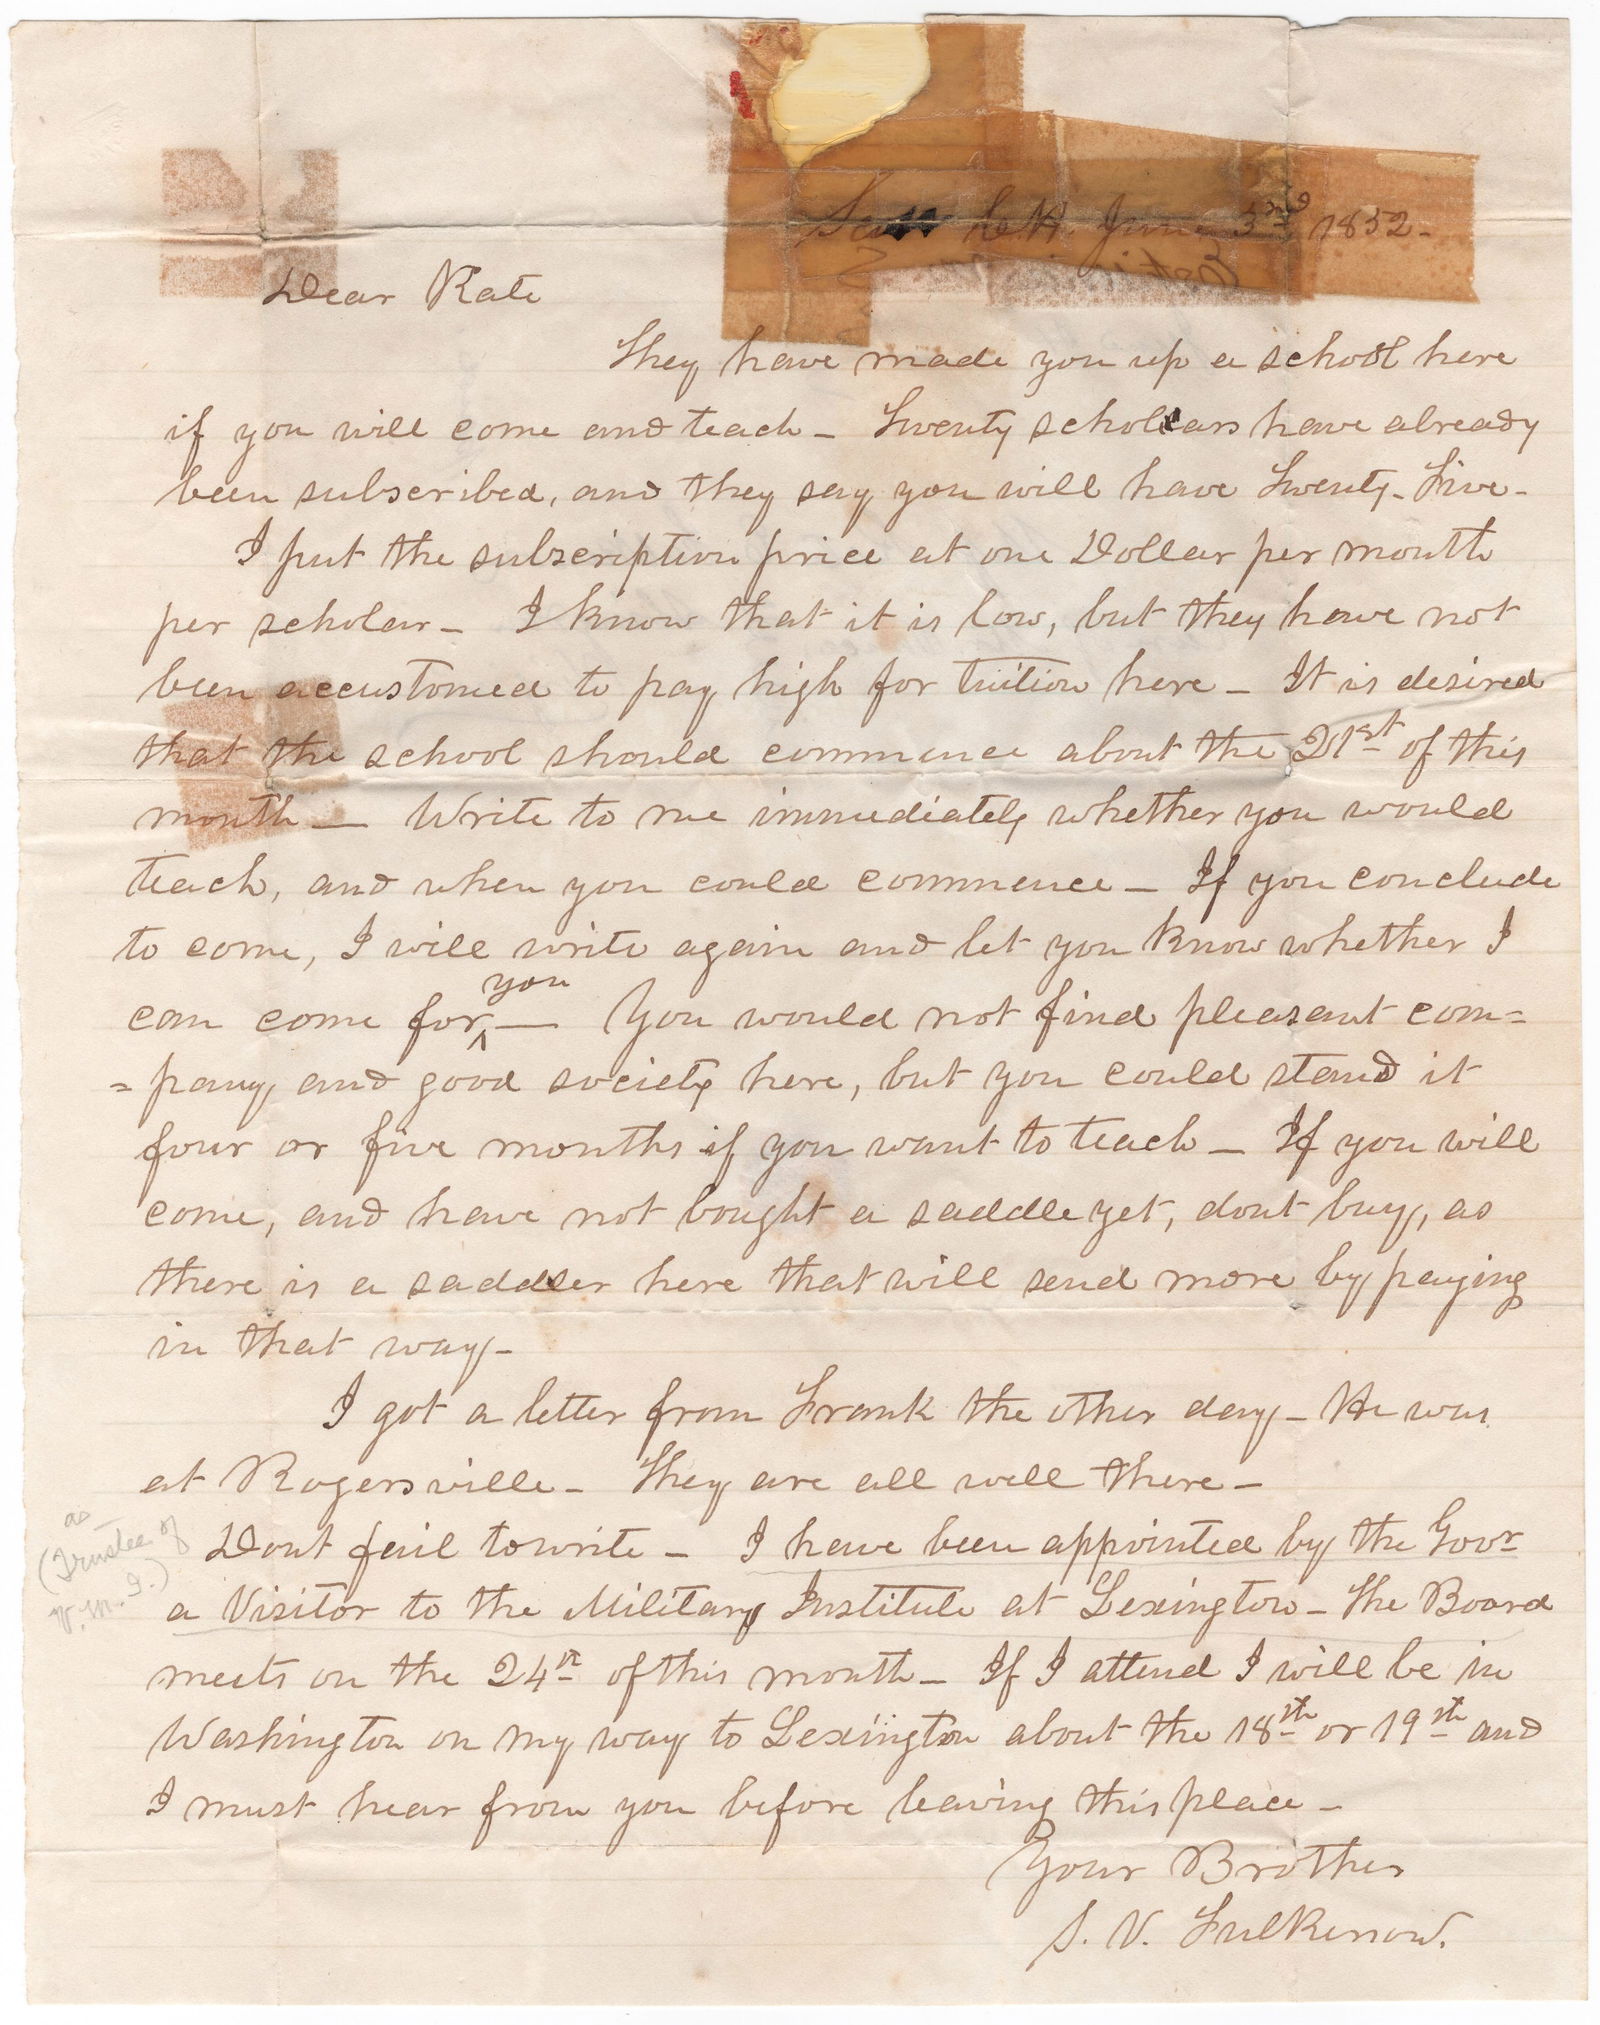 C.H. June 3rd 1852-
Dear Kate
They have made you up a school here
if you will come and teach - Twenty scholars have already
been subscribed, and they say you will have Twenty-Five-
I put the subscription price at one Dollar per month
per scholar - I know that it is low, but they have not
been accustomed to pay high for tuition here - It is desired
that the school should commence about the 21st of this
month - Write to me immediately whether you would
teach, and when you could commence - If you conclude
to come, I will write again and let you know whether I
can come for ^you - You would not find pleasant com=
=pany, and good society here, but you could stand it
four or five months if you want to teach - If you will
come, and have not bought a saddle yet, dont buy, as
there is a saddler here that will send more by paying
in that way-
I got a letter from Frank the other day - He was
at Rogersville - They are all well there -
Dont fail to write - I have been appointed by the Govr
as
(Trustee of
V.M.I.)
a Visitor to the Military Institute at Lexington - The Board
meets on the 24th of this month - If I attend I will be in
Washington on my way to Lexington about the 18th or 19th and
I must hear from you before leaving this place -
Your Brother
S. V. Fulkerson.